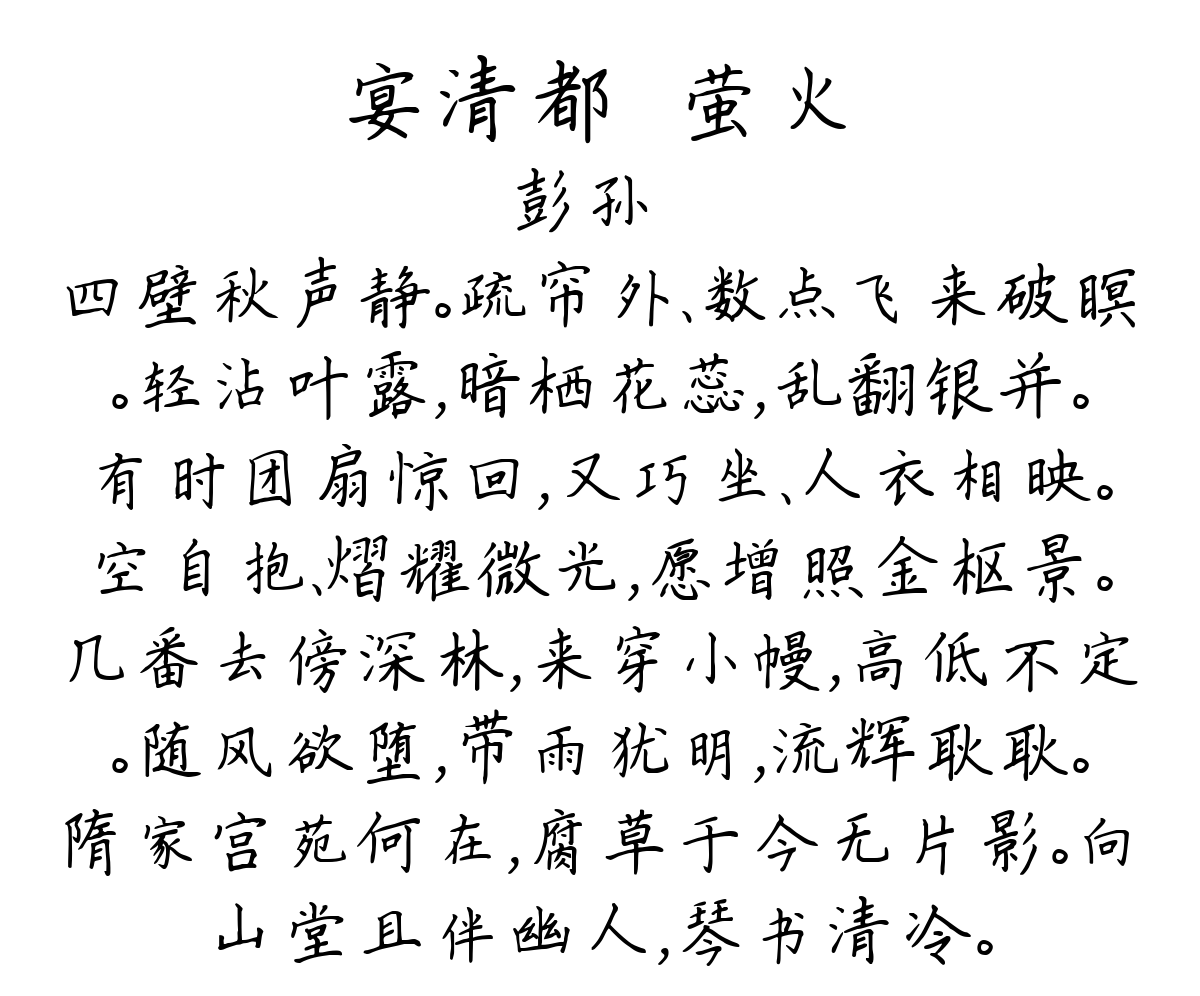 宴清都 萤火
彭孙
四壁秋声静。疏帘外、数点飞来破瞑
。轻沾叶露,暗栖花蕊,乱翻银并。
有时团扇惊回,又巧坐、人衣相映。
空自抱、熠耀微光,愿增照金枢景。
几番去傍深林,来穿小幔,高低不定
。随风欲堕,带雨犹明,流辉耿耿。
隋家宫苑何在,腐草于今无片影。向
山堂且伴幽人,琴书清冷。